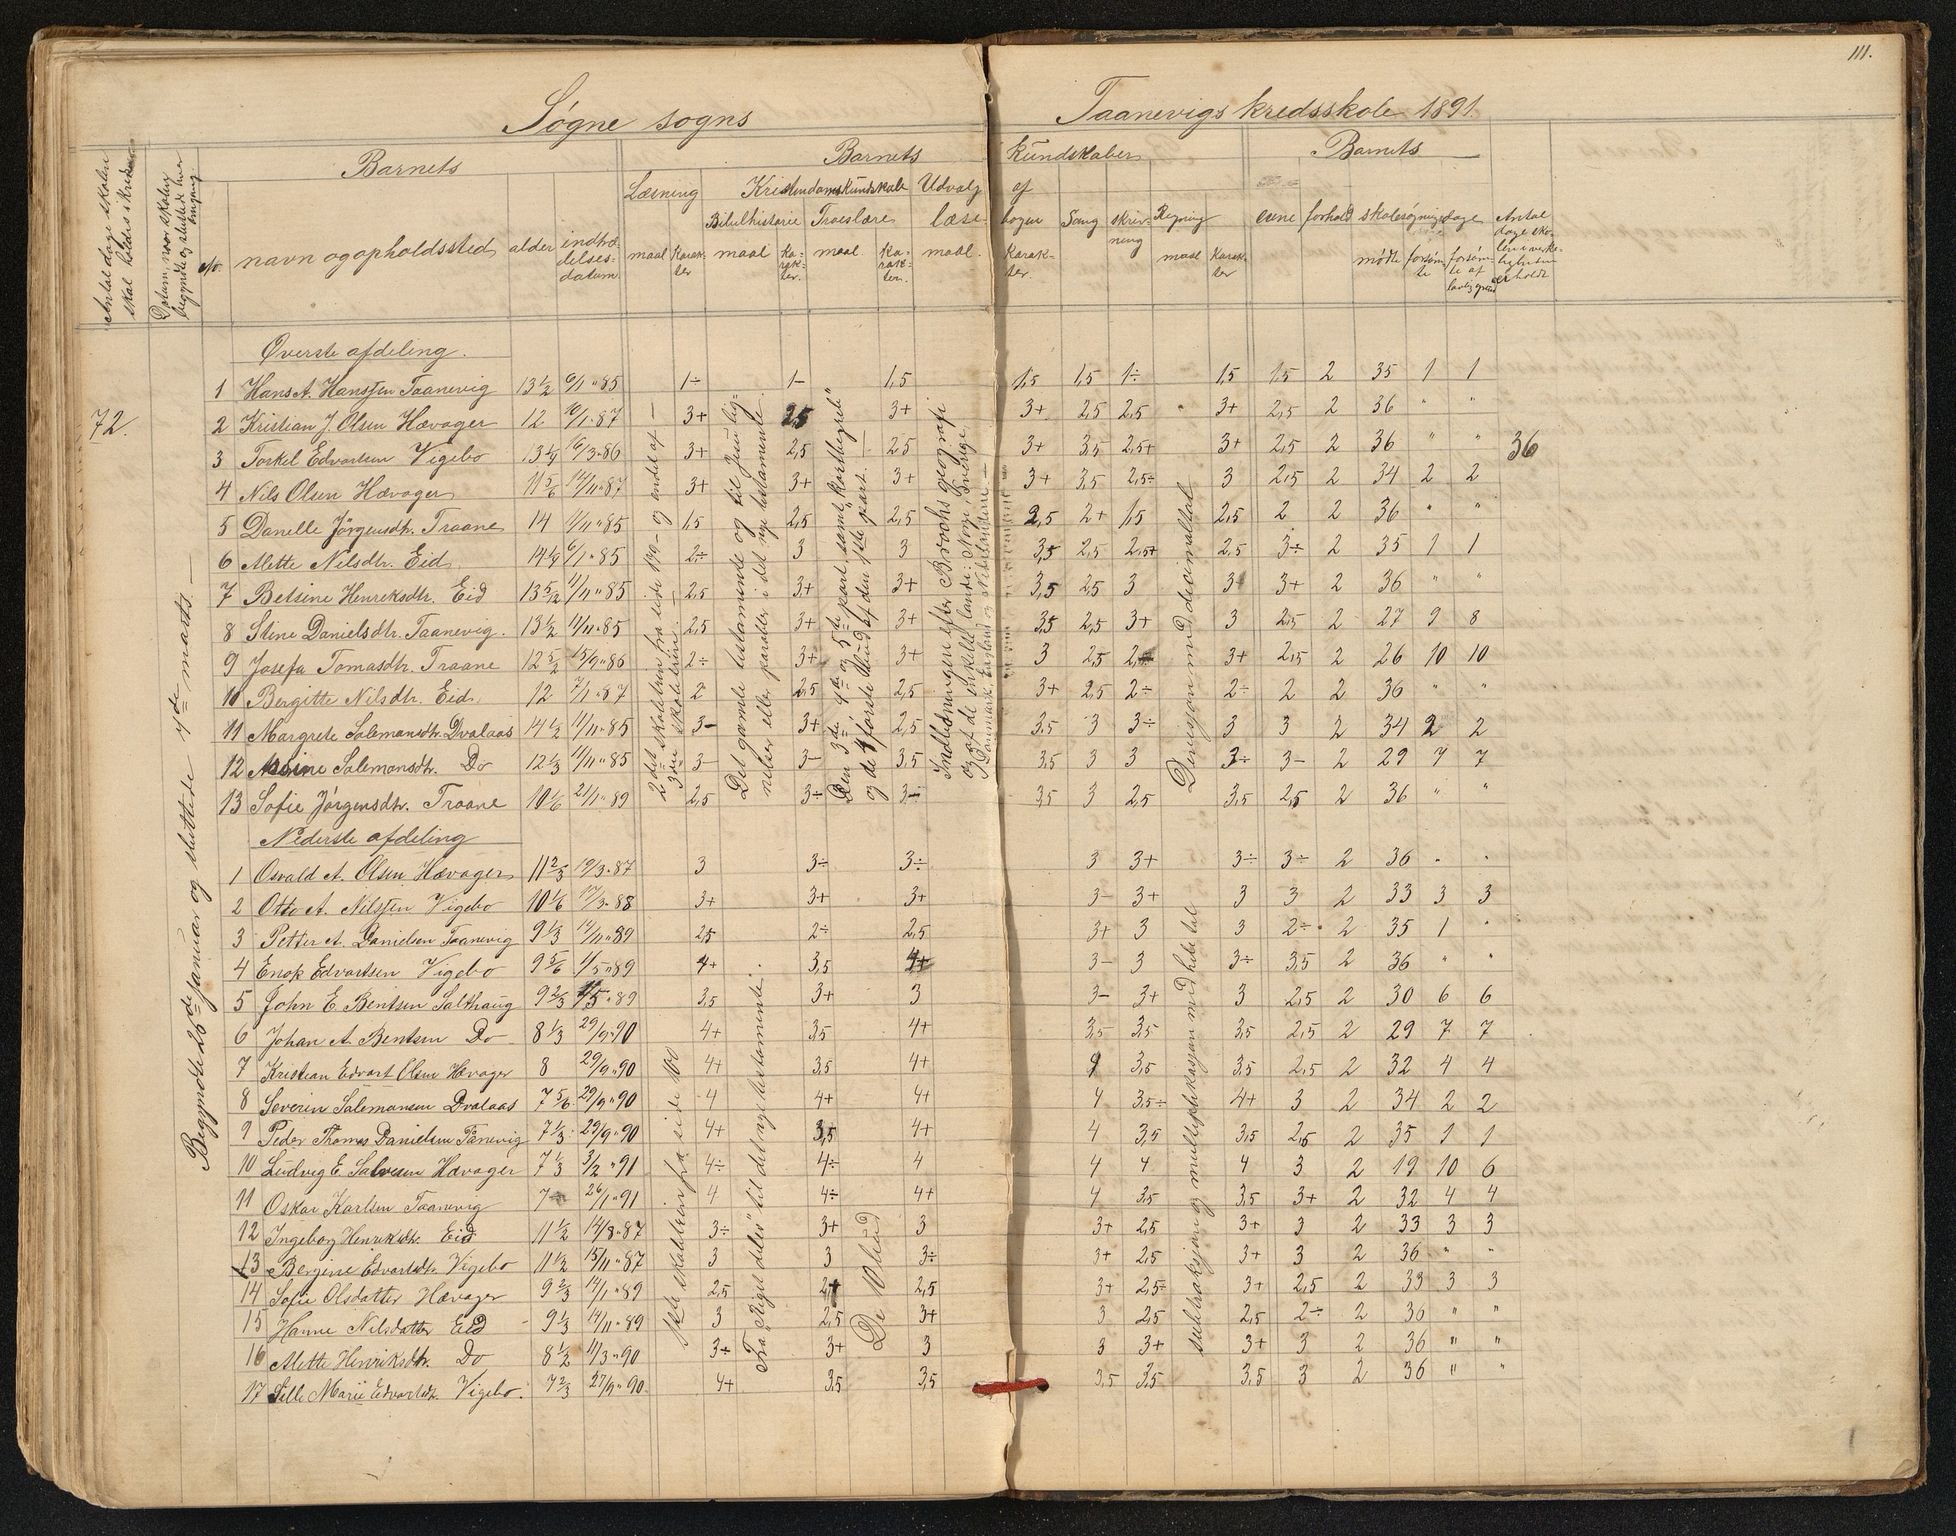 111.
Søgne sogns Taanevigs kredsskole 1891.
Antal dage skolen skal holdes i kredsen
Datum, naar skolen begyndte og sluttede hver omgang
Barnets Barnets kundskaber Barnets
No. navn og opholdssted alder indtrædelsesdatum
Læsning Kristendomskundskab Udvalg af
Bibelhistorie Troeslære læse- bogen Sang skrivning Regning evne forhold skolesøgningsdage Antal dage skolen i virkeligheden er holdt
maal Karakter maal Karakter maal Karakter maal Karakter maal Karakter mødte forsømte forsømte af lovlig grund
72.
36
Begyndte 26de januar og sluttede 7de marts.
Øverste afdeling.
1 Hans A. Hanssen Taanevig 13 1/2 6/1 " 85 1÷ 1- 1,5 1,5 1,5 1÷ 1,5 1,5 2 35 1 1
2 Kristian J. Olsen Hævager 12 6/1 " 87 3+ 2,5 3+ 3+ 2,5 2,5 3+ 2,5 2 36 " "
3 Torkel Edvartsen Vigebo 13 1/4 16/3 " 86 3+ 2,5 2,5 3+ 3,5 2,5+ 3+ 2,5 2 36 " "
4 Nils Olsen Hævager 11 5/6 14/11 " 87 3+ 3+ 3+ 3+ 3,5 2,5÷ 3 2,5 2 34 2 2
5 Danelle Jörgensdtr. Traane 14 11/11 " 85 1,5 2,5 2,5 2,5 2+ 1,5 2,5 2 2 36 " "
6 Alette Nilsdtr. Eid 14 1/4 6/1 " 85 2÷ 3 3 3,5 2,5 2,5+ 2,5 3÷ 2 35 1 1
7 Betsine Henreksdtr. Eid 13 5/12 11/11 " 85 2,5 3+ 3+ 3,5 2,5 3 3 3+ 2 36 " "
8 Stine Danielsdtr. Taanevig. 13 1/2 11/11 " 85 2,5 3+ 3+ 3,5 2,5 3+ 3 2,5 2 27 9 8
9 Josefa Tomasdtr. Traane 12 5/2 15/9 " 86 2÷ 3+ 3+ 3 2,5 3+ 2,5 2 26 10 10
10 Bergitte Nilsdtr. Eid. 12 7/1 " 87 2 2,5 2,5 3+ 2,5 2÷ 2÷ 2 2 36 " "
11 Margrete Salemonsdtr. Dvalaas 14 1/2 11/11 " 85 3- 3+ 2,5 3,5 3 3÷ 3 3 2 34 2 2
12 Salemonsdtr. Do 12 1/3 11/11 " 85 3- 3- 3,5 3,5 3 3 3÷ 3- 2 29 7 7
13 Sofie Jörgensdtr. Traane 10 1/6 21/1 " 89 2,5 3÷ 3- 3,5 3 2,5 3,5 2,5 2 36 " "
2det skoletrin fra side 179 - og endel af 3die skoletrin. -
Det gamle testamente og til "Jesu lignelser eller parabler" i det nye testamente.
Den 3die 4de og 5de part samt "kortbegreb" og de 4 første bud af den 1ste part. -
Indledningen efter Brochs geografi og af de enkelte lande: Norge, Sverige, Danmark, England og Nederlandene. -
Divisjon med decimaltal
Nederste afdeling
1 Osvald A. Olsen Hævager 11 2/3 19/3 " 87 3 3÷ 3÷ 3 3+ 3÷ 3÷ 2 36 " "
2 Otto A. Nilssen Vigebo 10 1/6 17/3 " 88 3+ 3+ 3+ 3- 3+ 3 3 2 33 3 3
3 Petter A. Danielsen Taanevig 9 1/3 14/11 " 89 2,5 2÷ 2,5 3+ 3 3 2÷ 2 35 1 "
4 Enok Edvartsen Vigebo 9 5/6 11/5 " 89 4+ 3,5 4+ 3- 3 3÷ 3,5 2 36 " "
5 John E. Bentsen Salthaug 9 2/3 11/5 " 89 3,5 3+ 3 3- 3+ 3 2,5 2 30 6 6
6 Johan A. Bentsen Do 8 1/3 29/9 " 90 4+ 3,5 4+ 3,5 3,5 3,5 2,5 2 29 7 7
7 Kristian Edvart Olsen Hævager 8 29/9 " 90 4+ 3,5 4+ 4 3,5 3,5 2,5 2 32 4 4
8 Severin Salemonsen Dvalaas 7 5/6 29/9 " 90 4 4+ 4+ 4 3,5÷ 4+ 3 2 34 2 2
9 Peder Thomas Danielsen Tanevig 7 1/3 29/9 " 90 4+ 3,5 4+ 4 3,5 3,5 2,5 2 35 1 1
10 Ludvig E. Salvesen Hævager 7 1/3 3/2 " 91 4÷ 4÷ 4 4 4 4 3 2 19 10 6
11 Oskar Karlsen Taanevig 7 26/1 " 91 4 4÷ 4+ 4 3,5 3,5 3+ 2 32 4 4
12 Ingeborg Henriksdtr. Eid 11 1/2 14/8 " 87 3÷ 3+ 3 3+ 2,5 3+ 3 2 33 3 3
13 Bergine Edvartsdtr. Vigebo 11 1/2 15/11 " 87 3 3 3÷ 3+ 2,5 3+ 3 2 36 " "
14 Sofie Olsdatter Hævager 9 2/3 14/1 " 89 2,5 2,5 3+ 2,5÷ 3+ 2,5 2 33 3 3
15 Hanne Nilsdatter Eid 9 1/3 14/11 " 89 3 2,5 3+ 3 2,5 2,5 2÷ 2 36 " "
16 Alette Henriksdtr. Do 8 1/2 11/3 " 90 3+ 3+ 3 3 3+ 3+ 3 2 36 " "
17 Sille Marie Edvartsdtr. Vigebo. 7 2/3 27/9 " 90 4+ 3,5 3,5 3,5 3,5 3,5 3 2 36 " "
1ste skoletrin fra side 100
Fra "Rigets deling" til det nye testamente.
De 10 bud
subtraksjon og multiplikasjon med hele tal